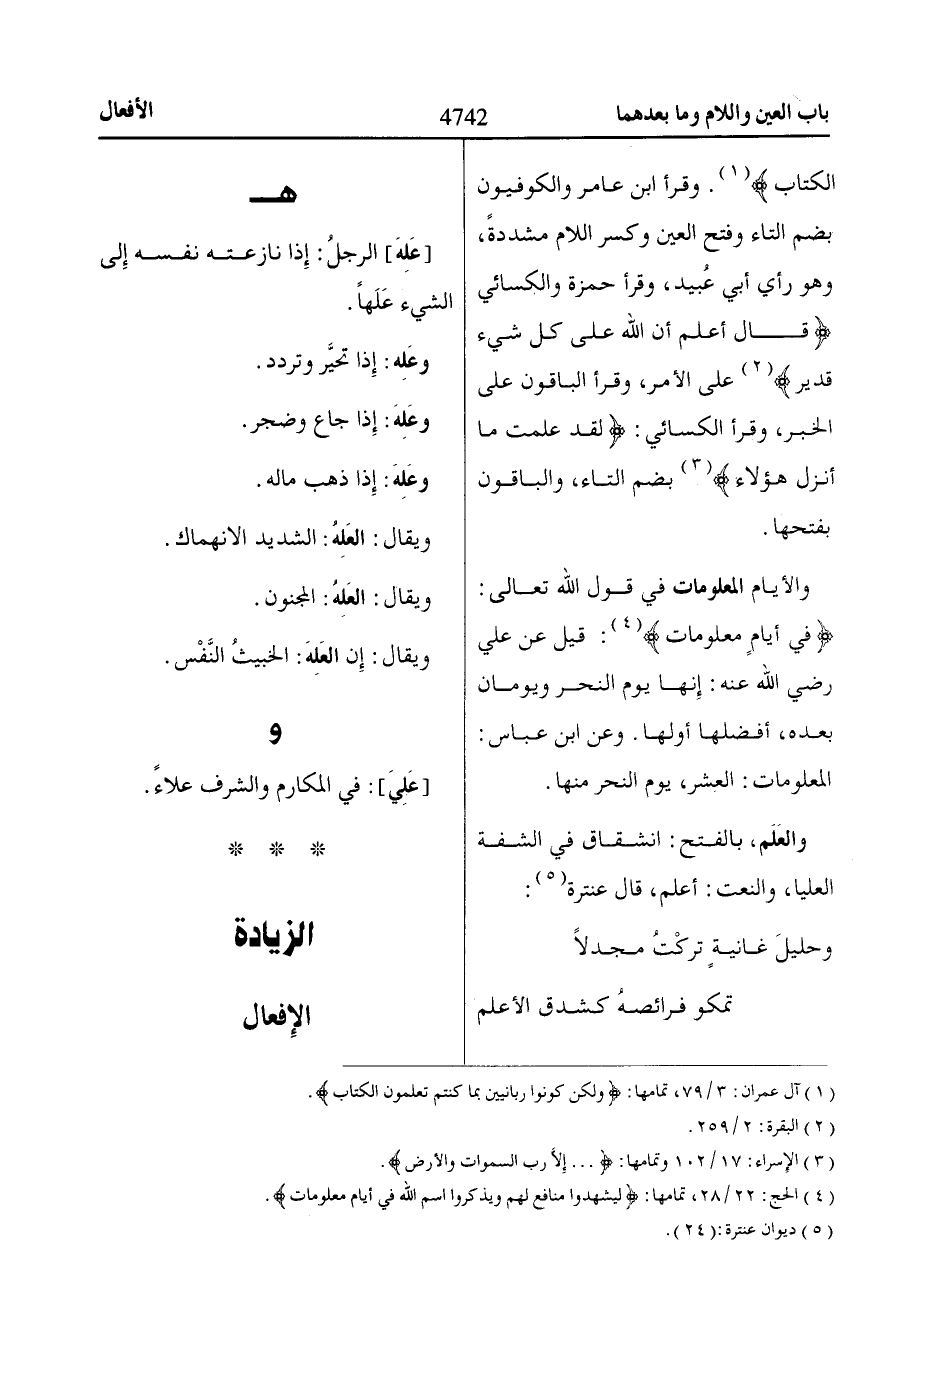 باب العين واللام وما بعدهما 4742 الأفعال
الكتاب ﴾(١). وقرأ ابن عامر والكوفيون
بضم التاء وفتح العين وكسر اللام مشددةً،
وهو رأي أبي عُبيد، وقرأ حمزة والكسائي
﴿ قـــال أعلم أن الله على كل شيء
قدير ﴾(٢) على الأمر، وقرأ الباقون على
الخبر، وقرأ الكسائي: ﴿ لقد علمت ما
أنزل هؤلاء ﴾(٣) بضم التاء، والباقون
بفتحها.
والأيام المعلومات في قول الله تعالى:
﴿ في أيامٍ معلومات ﴾(٤): قيل عن علي
رضي الله عنه: إنها يوم النحر ويومان
بعده، أفضلها أولها. وعن ابن عباس:
المعلومات: العشر، يوم النحر منها.
والعَلَم، بالفتح: انشقاق في الشفة
العليا، والنعت: أعلم، قال عنترة(٥):
وحليلَ غانيةٍ تركْتُ مجدلاً
تمكو فرائصهُ كشدق الأعلم
هـ
[عَلِهَ] الرجلُ: إذا نازعته نفسه إلى
الشيء عَلَهاً.
وعَلِه: إذا تحيَّر وتردد.
وعَلِهَ: إذا جاع وضجر.
وعَلِهَ: إذا ذهب ماله.
ويقال: العَلِهُ: الشديد الانهماك.
ويقال: العَلِهُ: المجنون.
ويقال: إن العَلِهَ: الخبيثُ النَّفْس.
و
[عَلِيَ]: في المكارم والشرف علاءً.
* * *
الزيادة
الإفعال
(١) آل عمران: ٣/ ٧٩، تمامها: ﴿ ولكن كونوا ربانيين بما كنتم تعلمون الكتاب ﴾.
(٢) البقرة: ٢/ ٢٥٩.
(٣) الإسراء: ١٧/ ١٠٢ وتمامها: ﴿ ... إلاَّ رب السموات والأرض ﴾.
(٤) الحج: ٢٢/ ٢٨، تمامها: ﴿ ليشهدوا منافع لهم ويذكروا اسم الله في أيام معلومات ﴾.
(٥) ديوان عنترة: (٢٤).